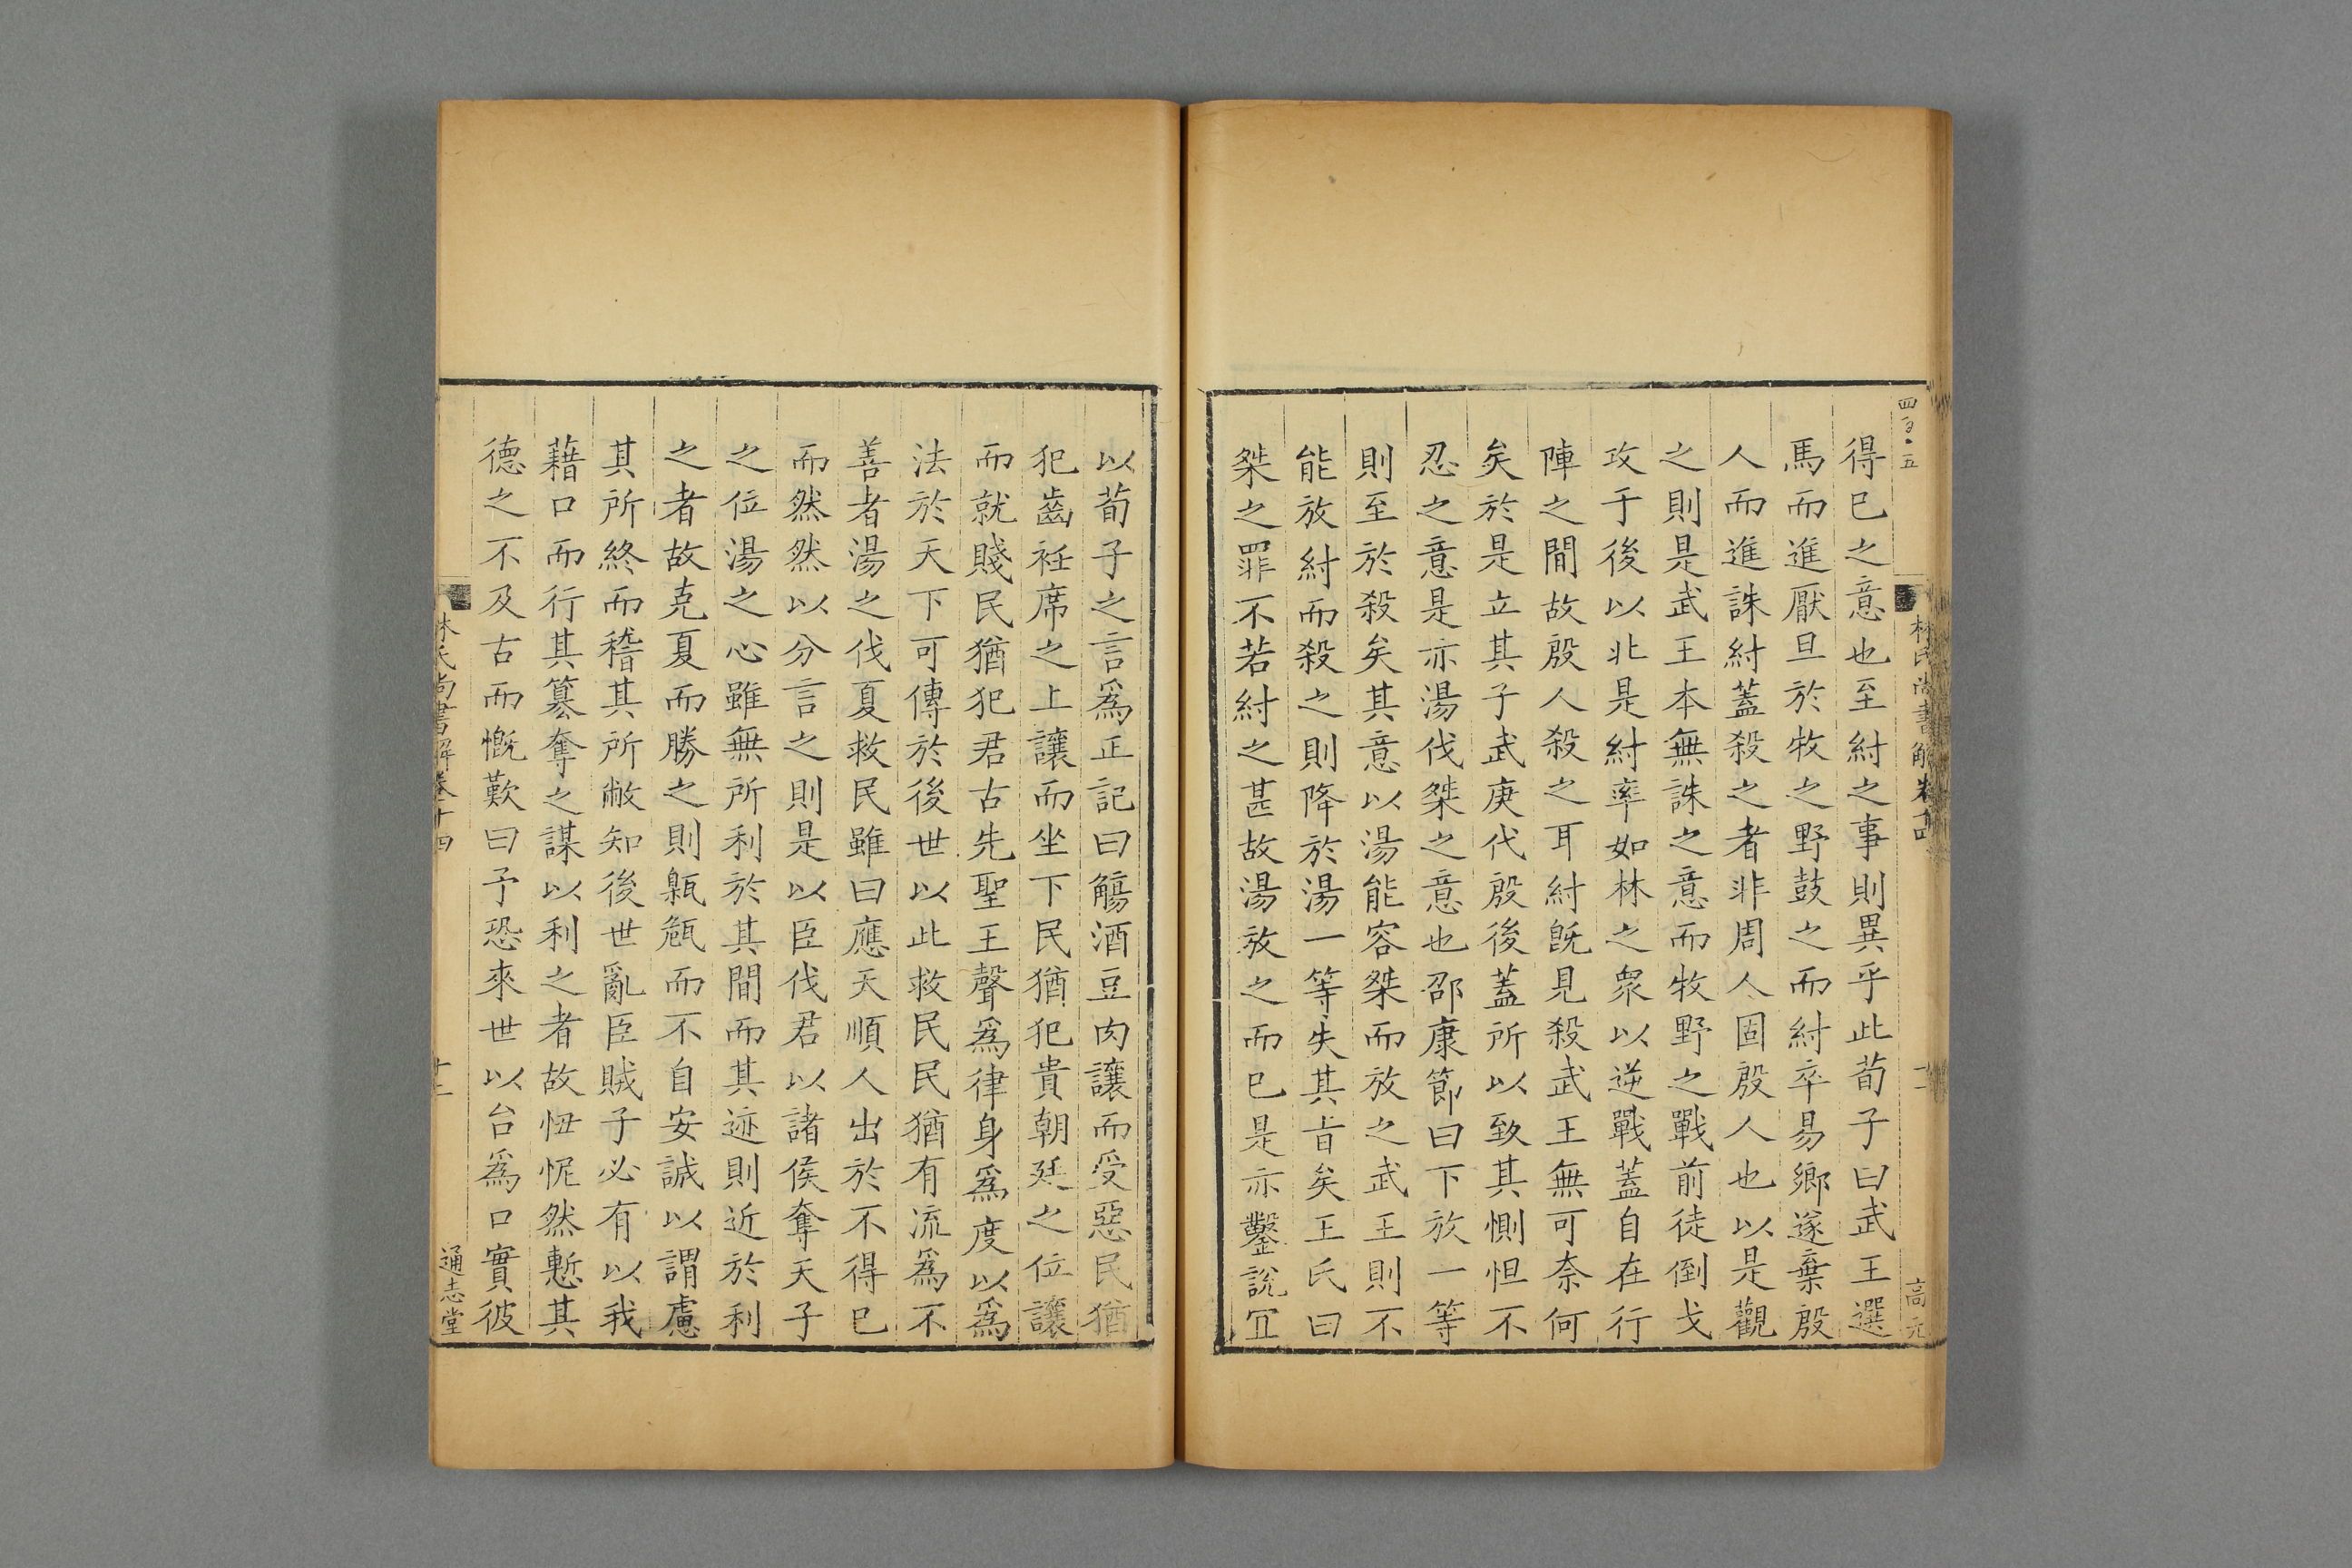 得已之意也至紂之事則異乎此荀子曰武王選
馬而進厭旦於牧之野鼓之而紂卒易鄉遂棄殷
人而進誅紂蓋殺之者非周人固殷人也以是觀
之則是武王本無誅之意而牧野之戰前徒倒戈
攻于後以北是紂率如林之衆以逆戰蓋自在行
陣之間故殷人殺之耳紂旣見殺武王無可奈何
矣於是立其子武庚代殷後蓋所以致其惻怛不
忍之意是亦湯伐桀之意也邵康節曰下放一等
則至於殺矣其意以湯能容桀而放之武王則不
能放紂而殺之則降於湯一等失其旨矣王氏曰
桀之罪不若紂之甚故湯放之而已是亦鑿說冝
以荀子之言爲正記曰觴酒豆肉讓而受惡民猶
犯齒衽席之上讓而坐下民猶犯貴朝廷之位讓
而就賤民猶犯君古先聖王聲爲律身爲度以爲
法於天下可傳於後世以此救民民猶有流爲不
善者湯之伐夏救民雖曰應天順人出於不得已
而然然以分言之則是以臣伐君以諸侯奪天子
之位湯之心雖無所利於其間而其迹則近於利
之者故克夏而勝之則臲卼而不自安誠以謂慮
其所終而稽其所敝知後世亂臣賊子必有以我
藉口而行其簒奪之謀以利之者故忸怩然慙其
德之不及古而慨歎曰予恐來世以台爲口實彼
四百五
林氏尚書解卷十四
高元
林氏尚書解卷十四
十二
通志堂